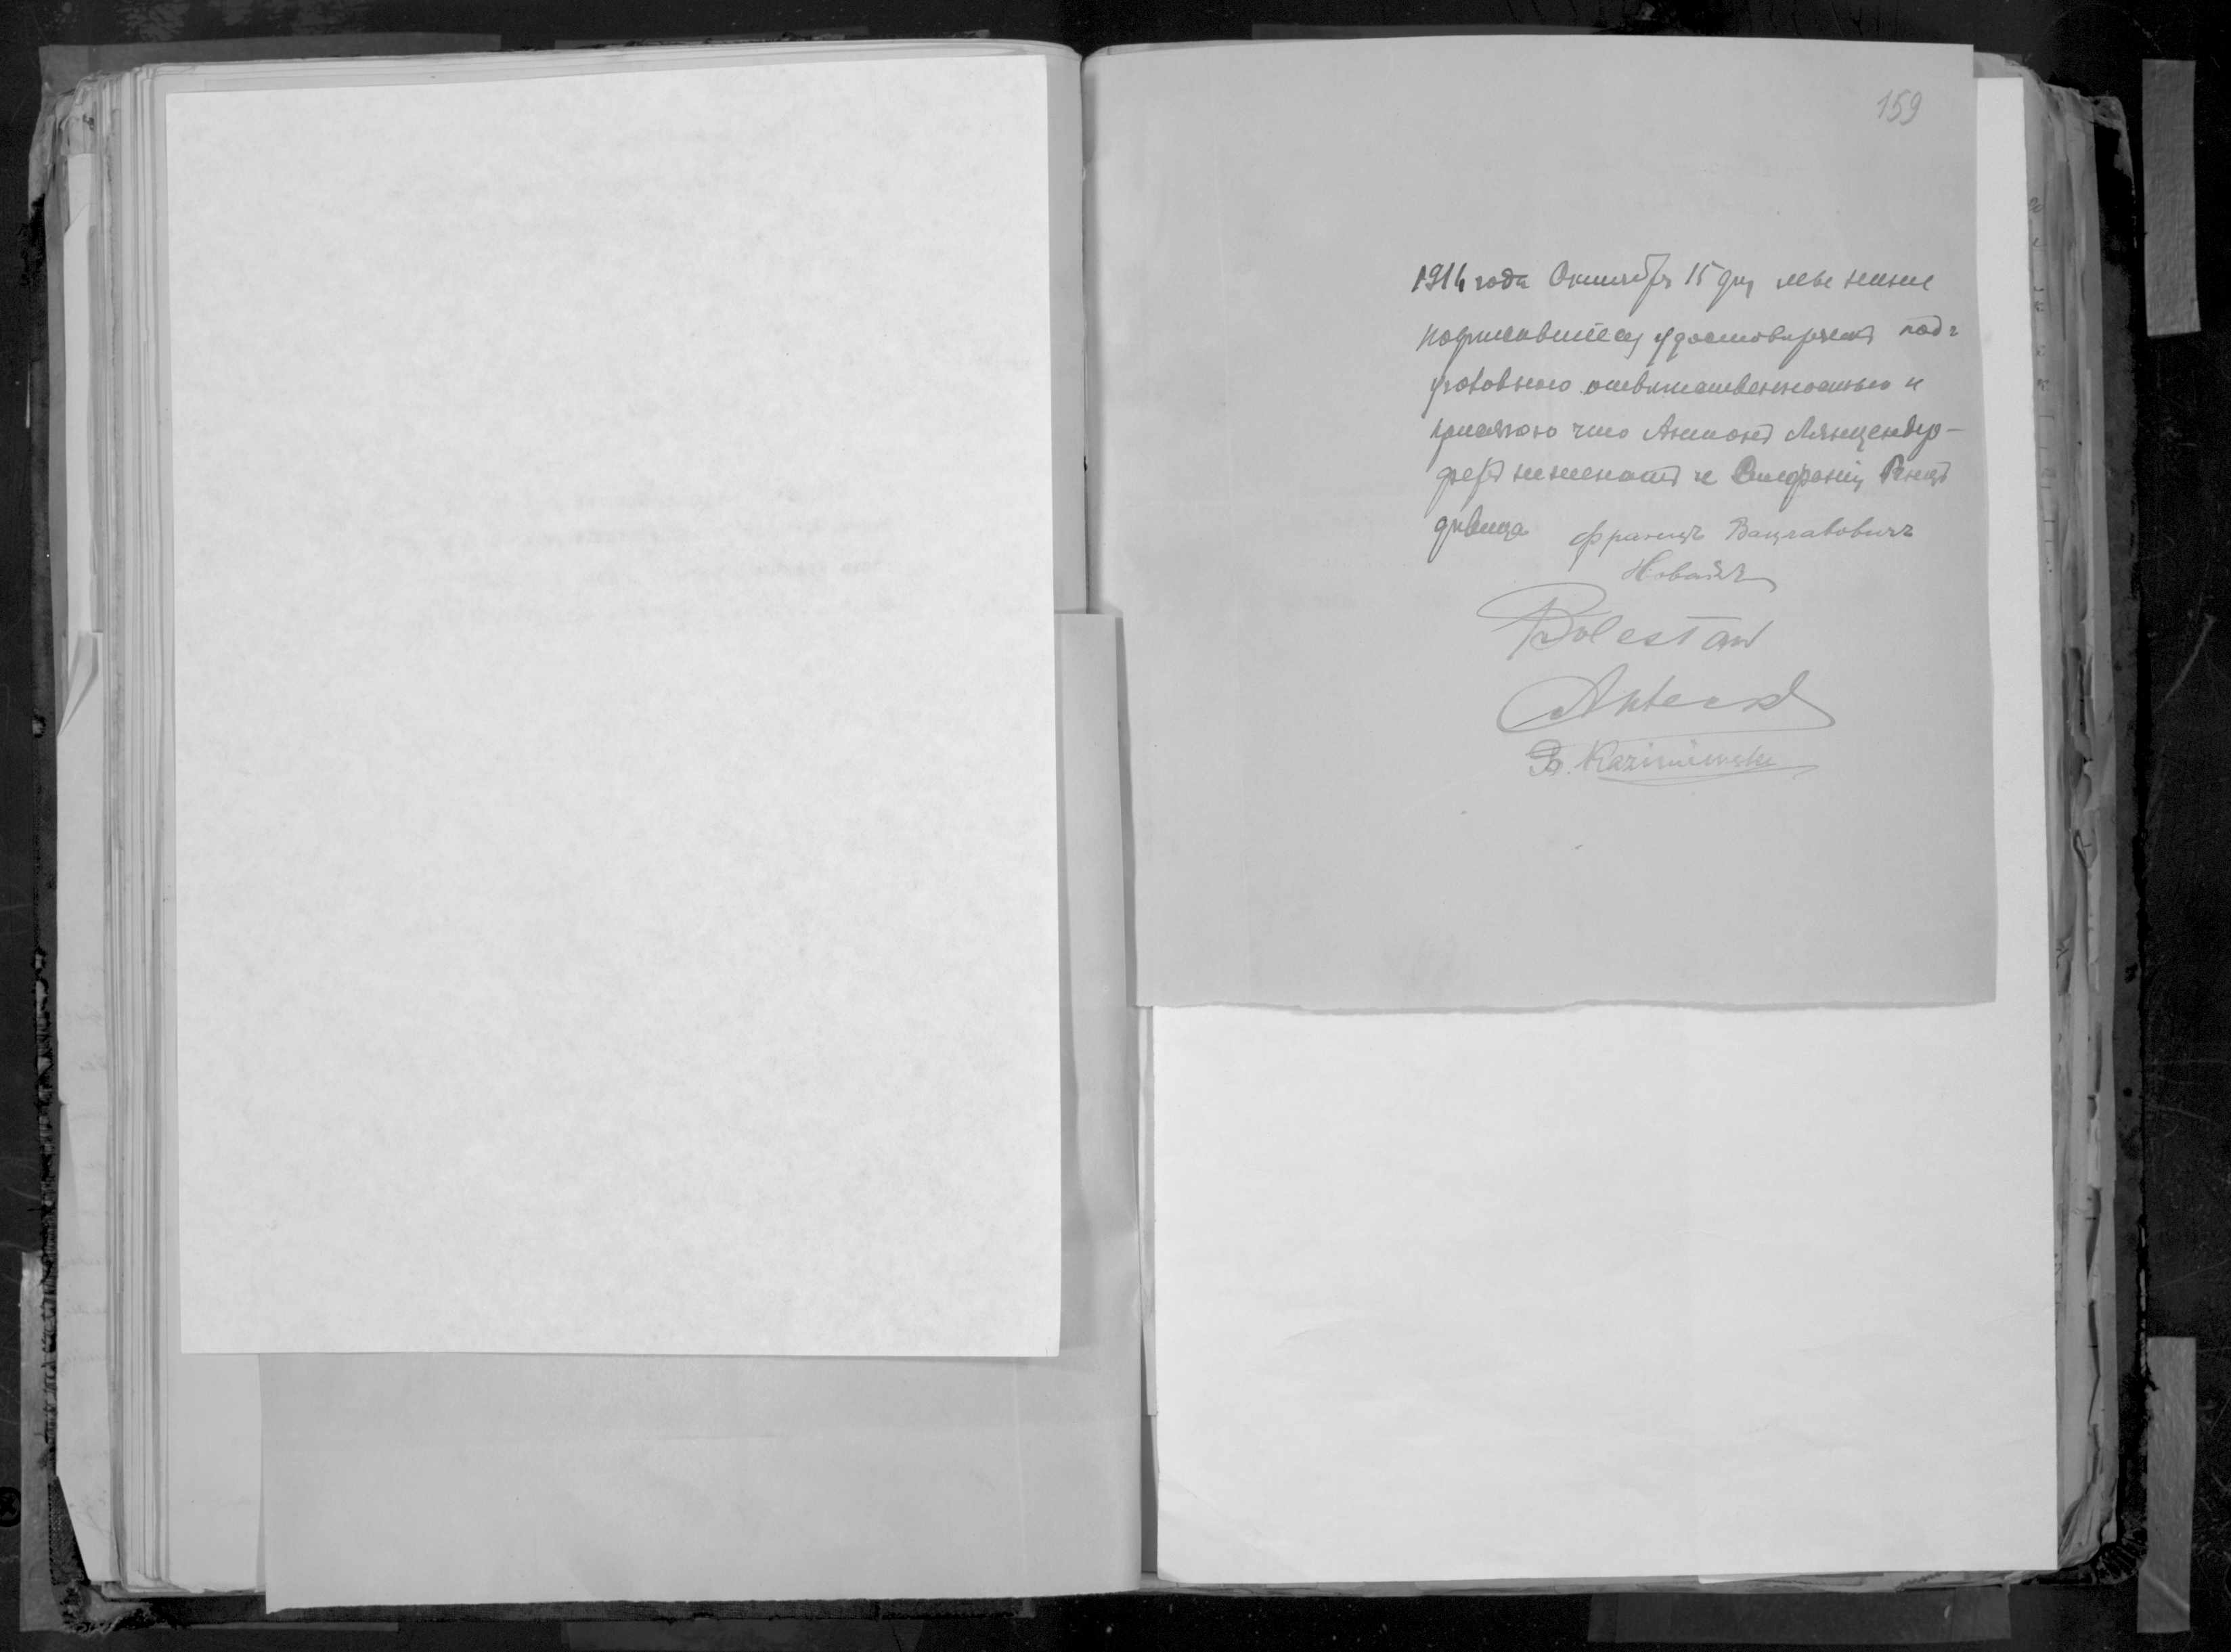 159
1914 года Октября 15 дня мы ниже
подписавшіеся удостоверяемъ подъ
уголовною ответственностью и
присягою что Антонъ Лянцендер-
феръ неженатъ и Стефанія
девица Францъ Вацлавовичъ
Новакъ
Bolesław
B. Kazimierski